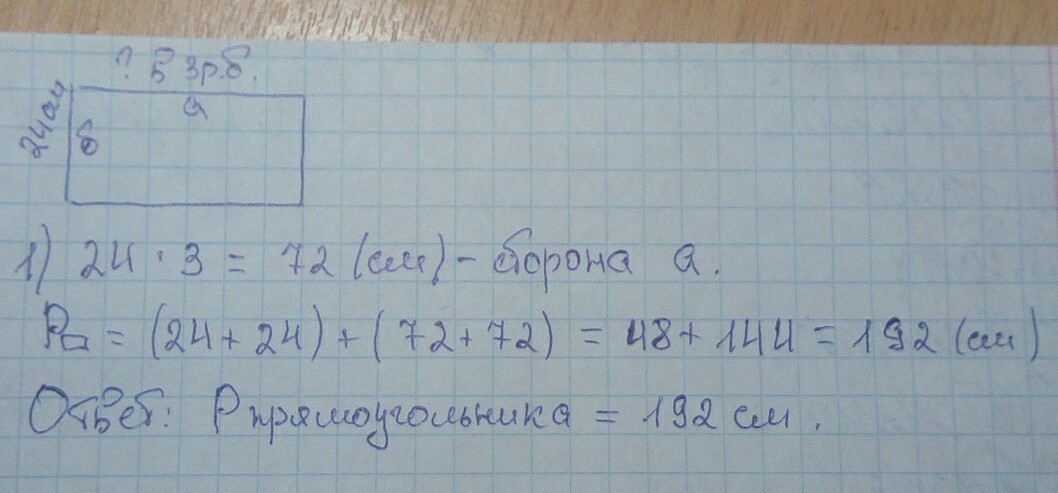 ? в 3 р. б.
а
24 см
б
1) 24 · 3 = 72 (см) - сторона а.
P▭ = (24 + 24) + (72 + 72) = 48 + 144 = 192 (см)
Ответ: P прямоугольника = 192 см.